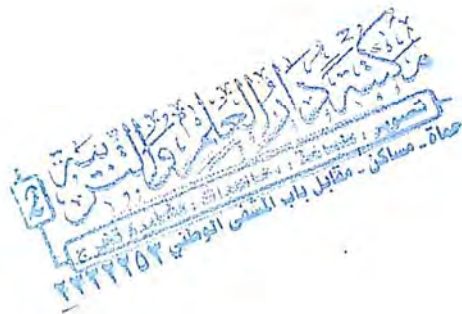 مكتبة دار العلم والتربية
2
تصوير : طباعة : محاضرات :
حماة - مساكن - مقابل باب المشفى الوطني ٢٢٢٢٢٥٣